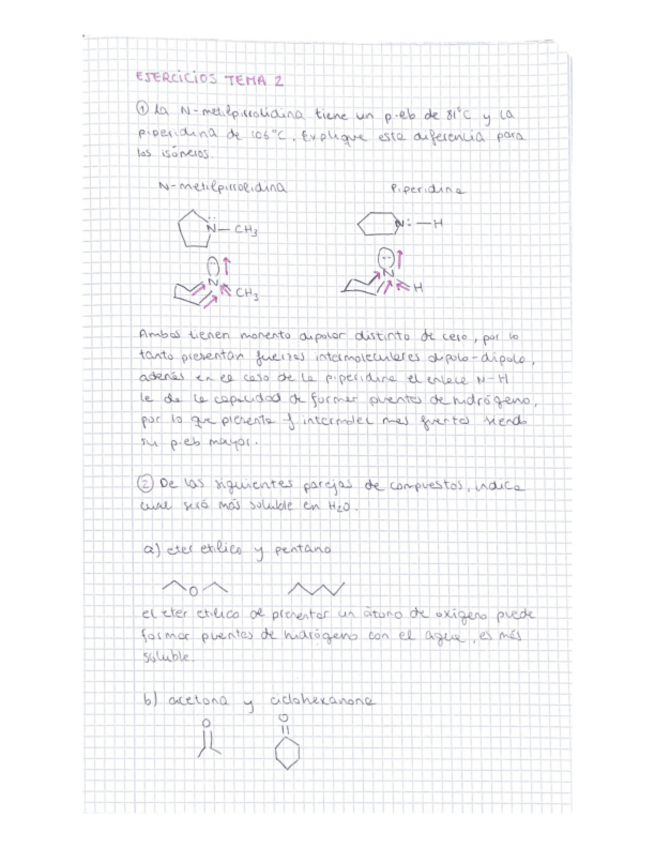 EJERCICIOS TEMA 2
① La N-metilpirrolidina tiene un p.eb de 81°C y la
piperidina de 106°C. Explique esta diferencia para
los isómeros.
N-metilpirrolidina
Piperidina
N-CH₃
N: -H
N
CH₃
N
H
Ambos tienen momento dipolar distinto de cero, por lo
tanto presentan fuerzas intermoleculares dipolo-dipolo,
además en el caso de la piperidina el enlace N-H
le da la capacidad de formar puentes de hidrógeno,
por lo que presenta f intermolec mas fuertes siendo
su p.eb mayor.
② De las siguientes parejas de compuestos, indica
cual será más soluble en H₂O.
a) eter etilico y pentano
O
el eter etilico al presentar un átomo de oxígeno puede
formar puentes de hidrógeno con el agua, es más
soluble.
b) acetona y ciclohexanona
O
O